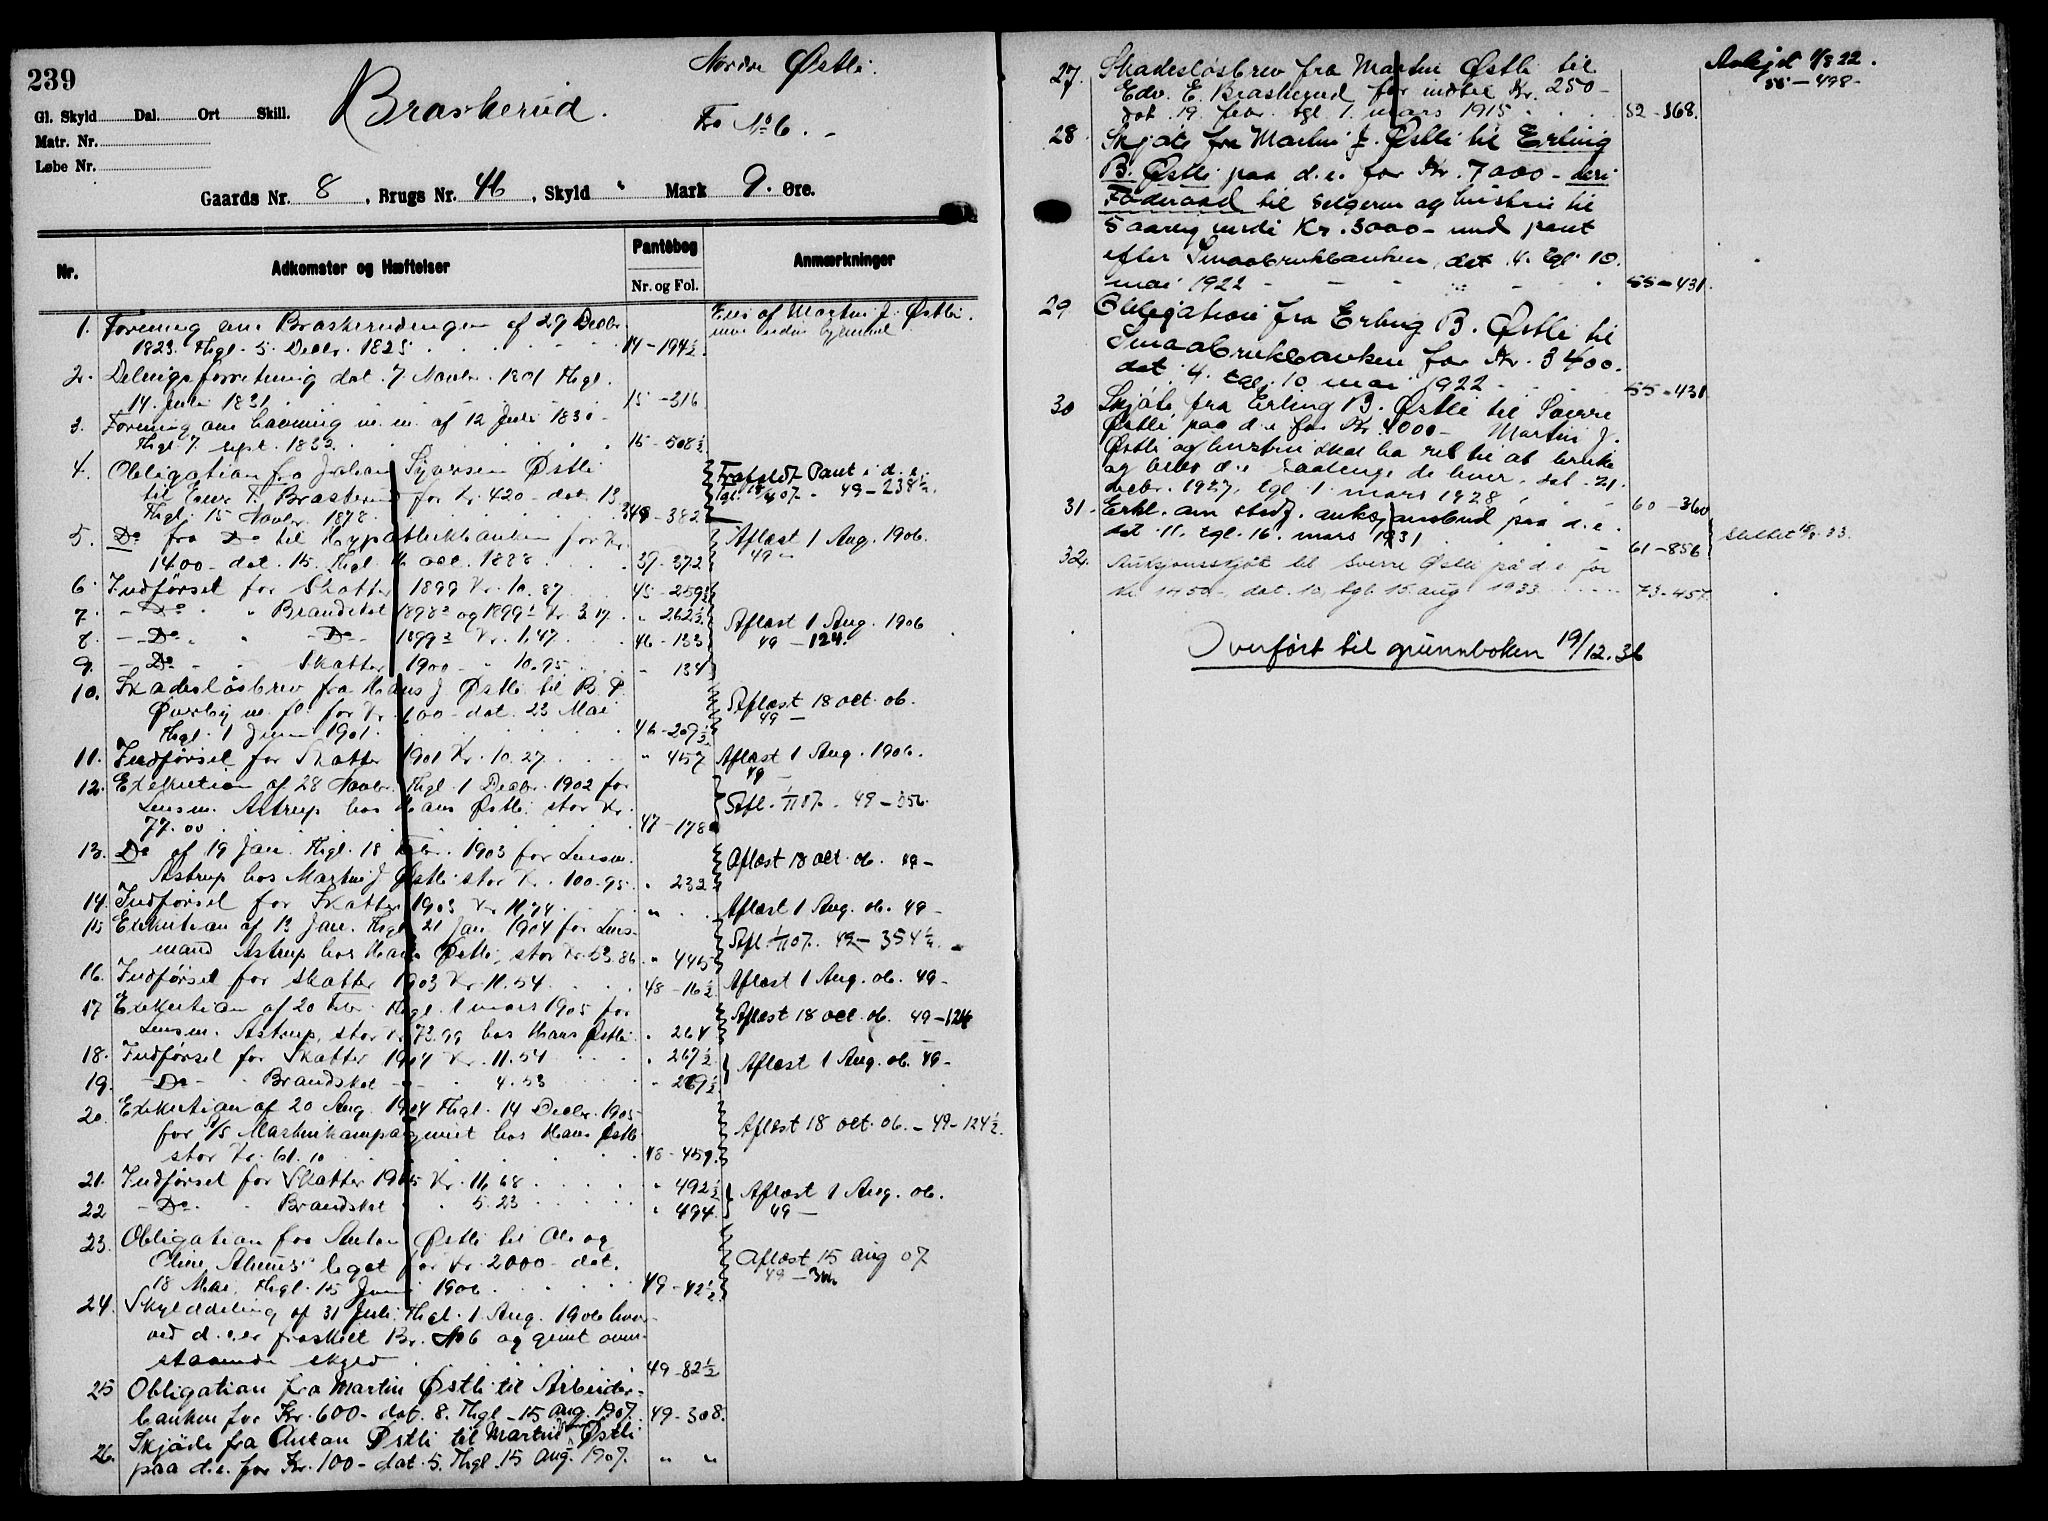 239
Nordre Østli.
Braskerud.
Fra No 6.
Gl. Skyld Dal. Ort Skill.
Matr. Nr.
Løbe Nr.
Gaards Nr. 8, Brugs Nr. 46, Skyld " Mark 9. Øre.
Nr. Adkomster og Hæftelser Pantebog Nr. og Fol. Anmærkninger
Eies af Martin J. Østli.
1. Forening om Braskerudengen af 29 Decbr.
1823. Thgl. 5. Decbr. 1825 14-194½
2. Delingsforretning dat. 7. Novbr. 1801 Thgl.
14. Juli 1831 15-316
3. Forening om havning m. m. af 12 Juni 1830
Thgl. 7 sept. 1833 15-508½
4. Obligation fra Johan Syversen Østli
til Einer T. Braskerud for Kr. 420- dat. 13
Thgl. 15 Novbr. 1878 -382
Frafaldt Pant i d. e.
49-238½
5. Do fra Do til Hypothekbanken for Kr.
1400- dat. 15. Thgl. 16 oct. 1888 39-372
Aflæst 1 Aug. 1906.
49-
6. Indførsel for Skatter 1899 Kr. 10.87 45-259½
7. -Do- " Brandskat 1898² og 1899¹ Kr. 3.17 " 262½
8. -Do- " -Do- 1899² Kr. 1.47 46-133
Aflæst 1 Aug. 1906
49-124.
9. -Do- " Skatter 1900 " 10.95 " 134
10. Skadesløsbrev fra Hans J Østli til B. P.
Øverby m. fl. for Kr. 600- dat. 23 Mai
Thgl. 1 Juni 1901. 46-207½
Aflæst 18 oct. 06.
49-
11. Indførsel for Skatter 1901 Kr. 10.27 " 457
Aflæst 1 Aug. 1906.
49
12. Exekution af 28 Novbr. Thgl. 1 Decbr. 1902 for
Lensm. Astrup hos Hans Østli stor Kr.
77.00 47-178
Afl. 1/11 07. 49-356.
13. Do af 19 Jan. Thgl. 18 Febr. 1903 for Lensm.
Astrup hos Martin J Østli stor Kr. 100.95 " 232
Aflæst 18 oct. 06. 49-
14. Indførsel for Skatter 1903 Kr. 11.74 "
Aflæst 1 Aug. 06. 49-
15 Exekution af 13 Jan. Thgl. 21 Jan. 1904 for Lens-
mand Astrup hos Hans Østli, stor Kr. 53.86 " 445
Afl. 1/11 07. 49-354½
16. Indførsel for Skatter 1903 Kr. 11.54 48-16½
Aflæst 1 Aug. 06. 49-
17 Exekution af 20 Febr. Thgl. 1 mars 1905 for
Lensm. Astrup, stor Kr. 73.99 hos Hans Østli " 264
Aflæst 18 oct. 06. 49-124
18. Indførsel for Skatter 1904 Kr. 11.54 " 267½
19. -Do- " Brandskat " 4.53 " 269½
Aflæst 1 Aug. 06. 49-
20. Exekution af 20 Aug. 1904 Thgl. 14 Decbr. 1905
for A/S Maskinkompagniet hos Hans Østli
stor Kr. 61.10 48-459
Aflæst 18 oct. 06.- 49-124½
21. Indførsel for Skatter 1905 Kr. 11.68 " 492½
22 -Do- " Brandskat " 5.23 " 494
Aflæst 1 Aug. 06.
49-
23. Obligation fra Anton Østli til Ole og
Eline Alunds legat for Kr. 2000- dat.
18 Mai, Thgl. 15 Juni 1906 49-42½
Aflæst 15 aug 07
24. Skylddeling af 31 Juli Thgl. 1 Aug. 1906 hvor-
ved d. e. er fraskilt Br. No 6 og givet oven-
staaende skyld 49-82½
25 Obligation fra Martin Østli til Arbeider-
banken for Kr. 600- dat. 8. Thgl. 15 aug. 1907. 49-308.
26. Skjøde fra Anton Østli til Martin Østli
paa d. e. for Kr. 100- dat. 5. Thgl. 15 aug. 1907. " "
27. Skadesløsbrev fra Martin Østli til
Edv. E. Braskerud for indtil Kr. 250-
dat. 19. febr. tgl. 1. mars 1915 52-368.
Avlyst 1/8 22.
55-498-
28 Skjøte fra Martin J. Østli til Erling
B. Østli paa d. e. for Kr. 7000- deri
Føderaad til selgeren og hustru til
5 aarig verdi Kr. 3000- med pant
efter Smaabrukbanken, dat. 4. tgl. 10.
mai 1922 55-431.
29 Obligation fra Erling B. Østli til
Smaabrukbanken for Kr. 3400.
dat. 4. tgl. 10 mai 1922 55-431
30 Skjøte fra Erling B. Østli til Sverre
Østli paa d. e for Kr. 4000- Martin J.
Østli og hustru skal ha ret til at bruke
og bebo d. e. saalenge de lever, dat. 21.
decbr. 1927, tgl. 1. mars 1928 60-360
31. Erkl. om stedf. auksjonsbud paa d. e.
dat. 11. tgl. 16. mars 1931 61-856
Slettet 15/8 33.
32. Auksjonsskjøte til Sverre Østli på d e for
kr 1450- dat. 10, tgl. 15. aug 1933 73-457.
Overført til grunnboken 19/12.36